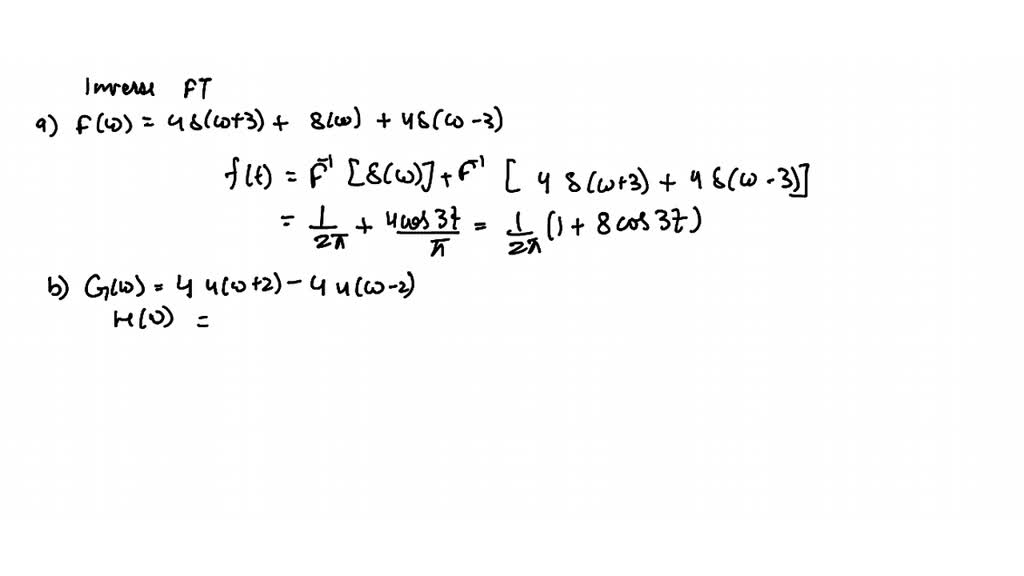 Inverse FT
a) F(ω) = 4δ(ω+3) + δ(ω) + 4δ(ω-3)
f(t) = F⁻¹ [δ(ω)] + F⁻¹ [4 δ(ω+3) + 4 δ(ω-3)]
= 1/2π + 4cos 3t/π = 1/2π (1 + 8 cos 3t)
b) G(ω) = 4 u(ω+2) - 4 u(ω-2)
H(ω) =